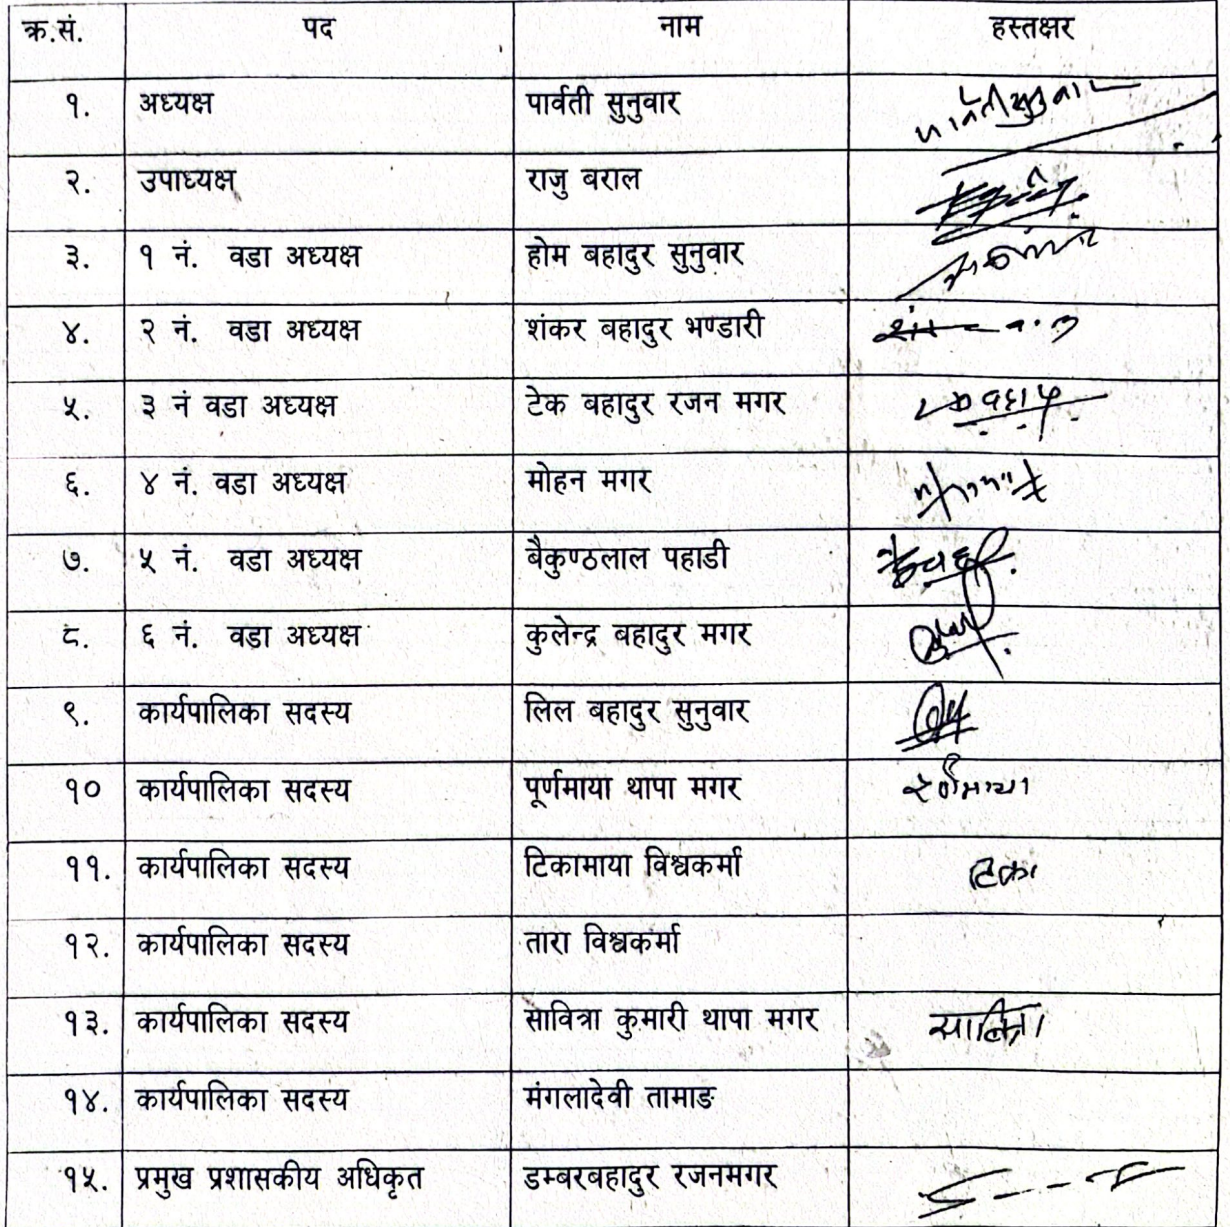 क्र.सं. पद नाम हस्तक्षर
१. अध्यक्ष पार्वती सुनुवार
२. उपाध्यक्ष राजु बराल
३. १ नं. वडा अध्यक्ष होम बहादुर सुनुवार
४. २ नं. वडा अध्यक्ष शंकर बहादुर भण्डारी
५. ३ नं वडा अध्यक्ष टेक बहादुर रजन मगर
६. ४ नं. वडा अध्यक्ष मोहन मगर
७. ५ नं. वडा अध्यक्ष बैकुण्ठलाल पहाडी
८. ६ नं. वडा अध्यक्ष कुलेन्द्र बहादुर मगर
९. कार्यपालिका सदस्य लिल बहादुर सुनुवार
१० कार्यपालिका सदस्य पूर्णमाया थापा मगर
११. कार्यपालिका सदस्य टिकामाया विश्वकर्मा टिका
१२. कार्यपालिका सदस्य तारा विश्वकर्मा
१३. कार्यपालिका सदस्य सावित्रा कुमारी थापा मगर सावित्रा
१४. कार्यपालिका सदस्य मंगलादेवी तामाङ
१५. प्रमुख प्रशासकीय अधिकृत डम्बरबहादुर रजनमगर